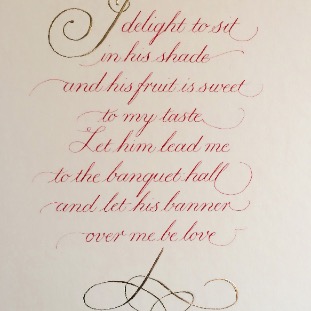 I delight to sit
in his shade
and his fruit is sweet
to my taste
Let him lead me
to the banquet hall
and let his banner
over me be love